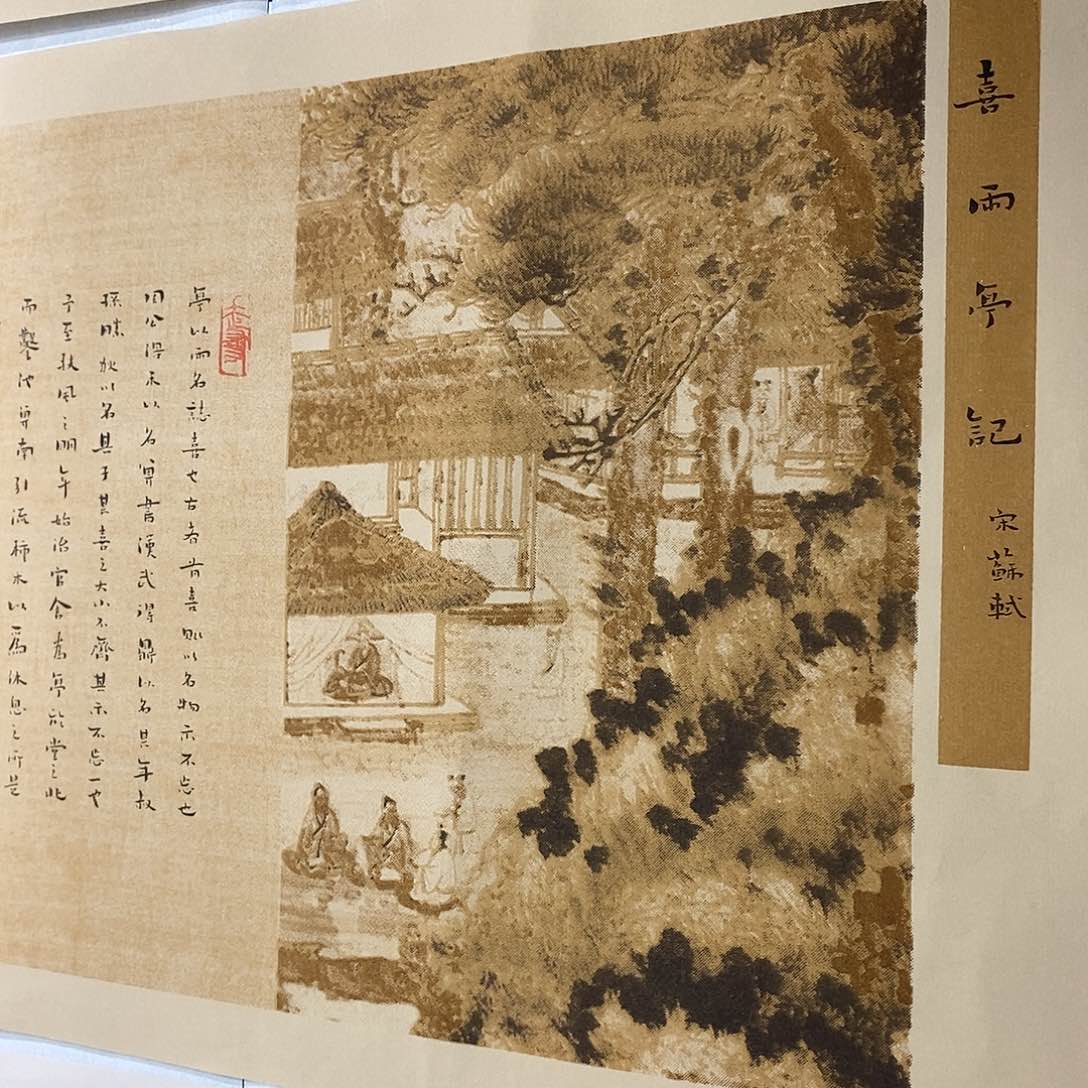 喜雨亭記
宋蘇軾
亭以雨名誌喜也古者有喜則以名物示不忘也
周公得禾以名其書漢武得鼎以名其年叔
孫勝狄以名其子其喜之大小不齊其示不忘一也
予至扶風之明年始治官舍為亭於堂之北
而鑿池其南引流種木以為休息之所是